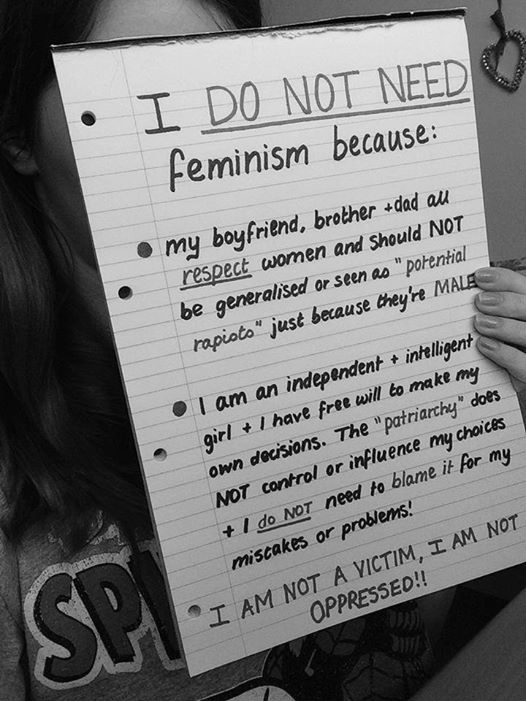 I DO NOT NEED
feminism because:
my boyfriend, brother + dad all
respect women and should NOT
be generalised or seen as "potential
rapists" just because they're MALE
I am an independent + intelligent
girl + I have free will to make my
own decisions. The "patriarchy" does
NOT control or influence my choices
+ I do NOT need to blame it for my
miscakes or problems!
I AM NOT A VICTIM, I AM NOT
OPPRESSED!!
SPI